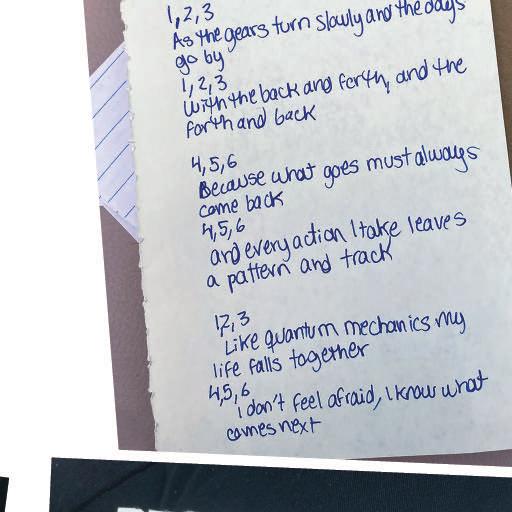 1,2,3
As the gears turn slowly and the days
go by
1,2,3
With the back and forth, and the
forth and back
4,5,6
Because what goes must always
come back
4,5,6
and every action I take leaves
a pattern and track
12,3
Like quantum mechanics my
life falls together
4,5,6
I don't feel afraid, I know what
comes next